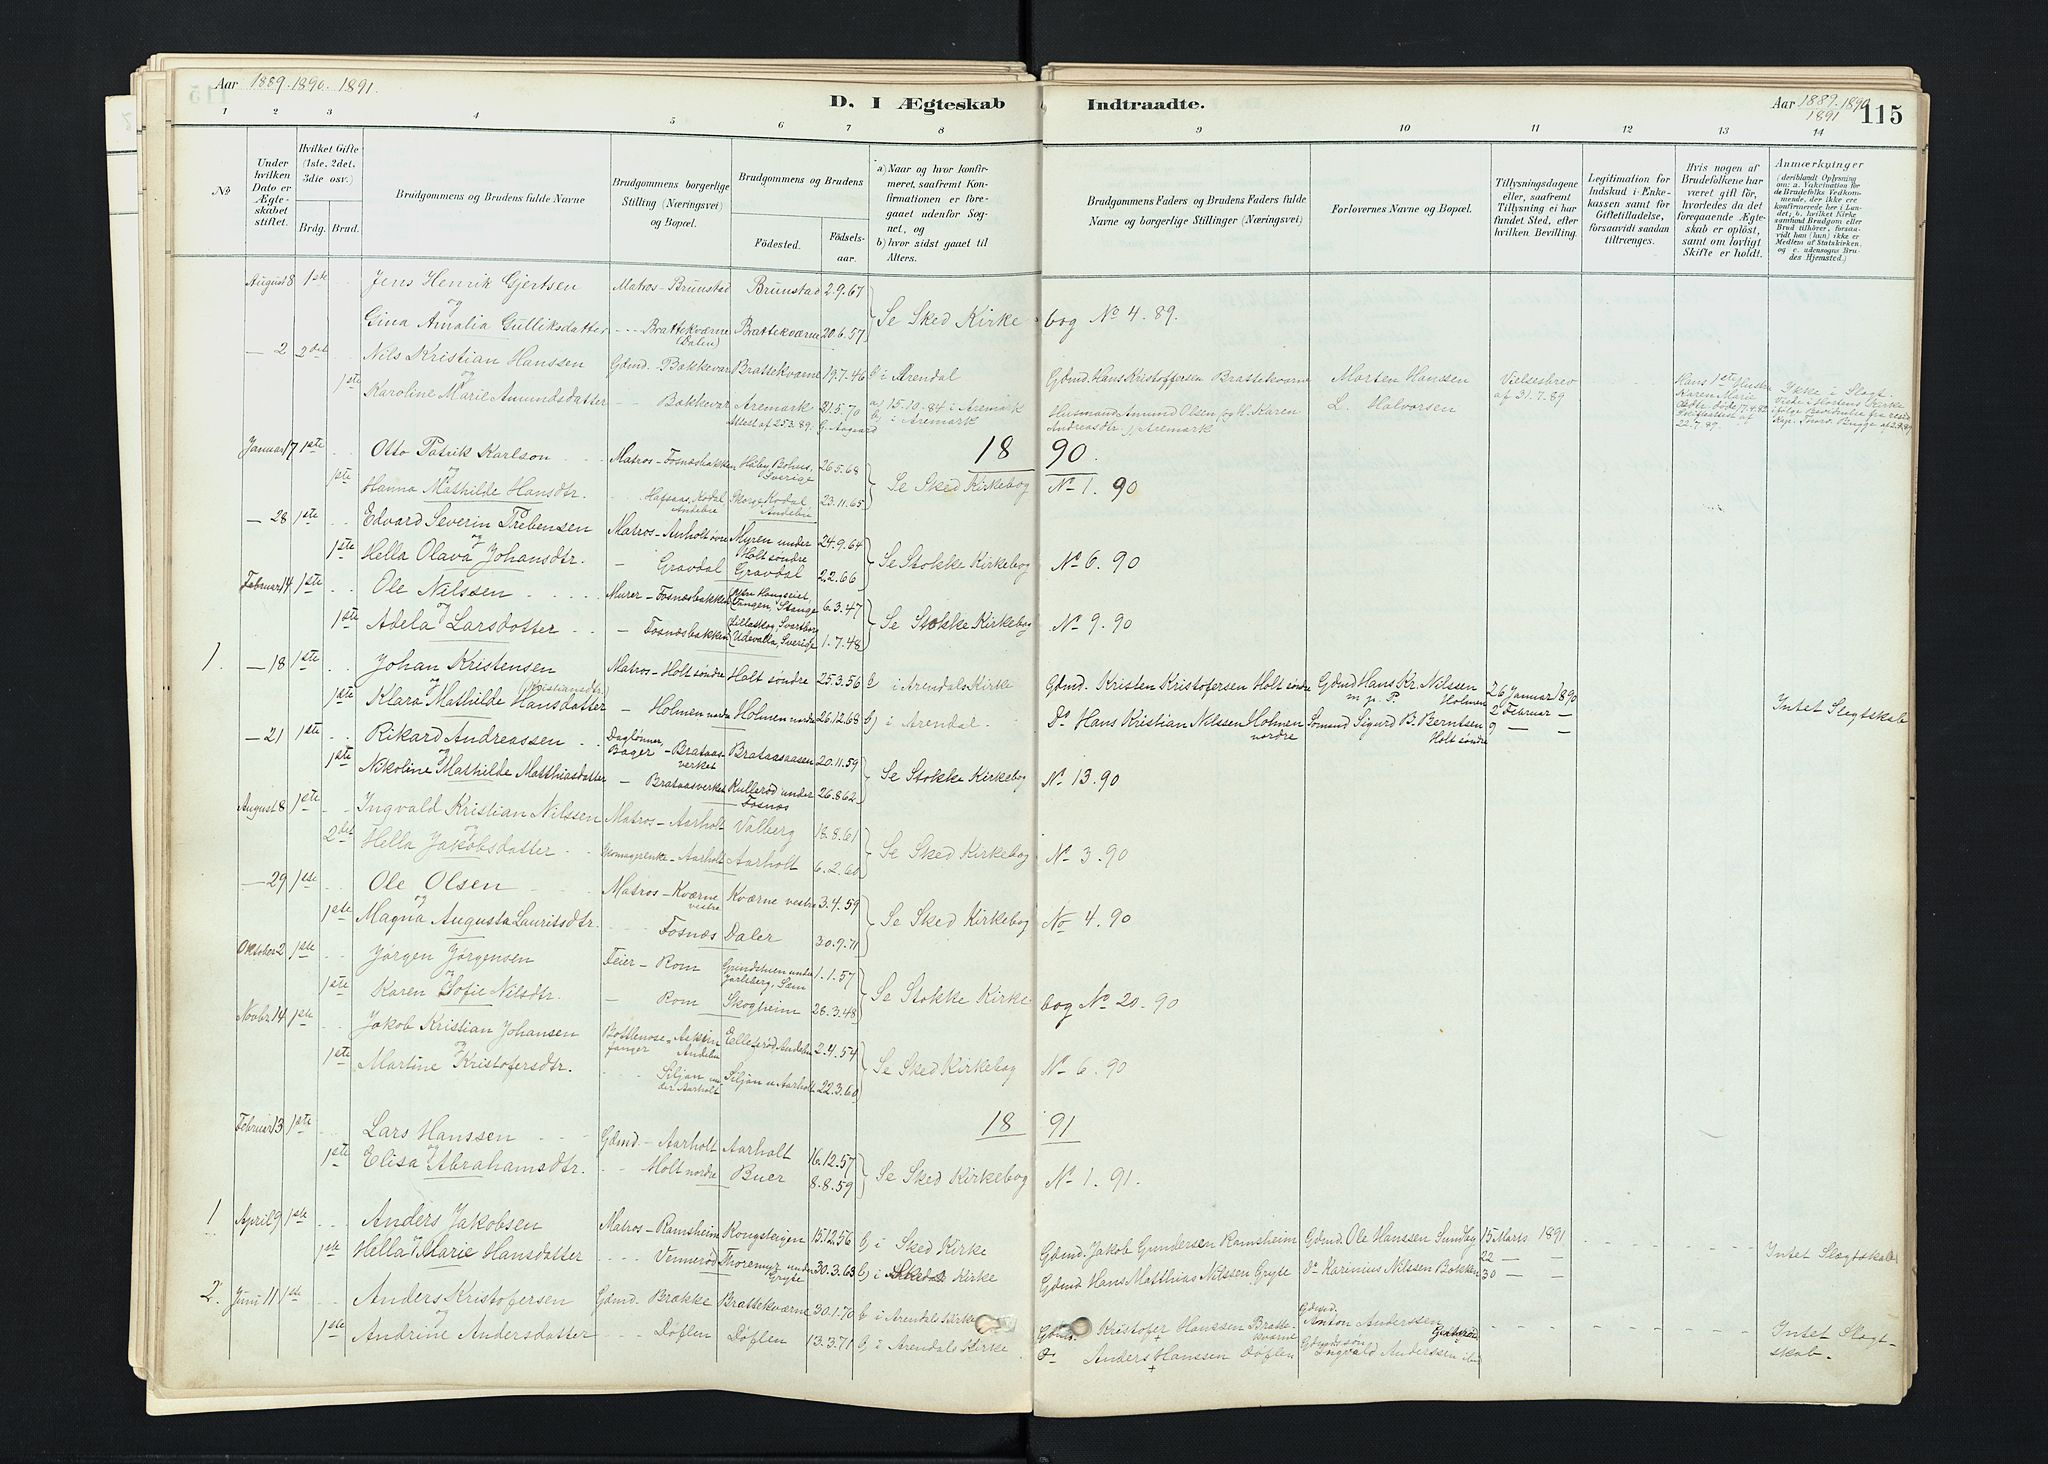 Aar 1889. 1890. 1891.
D. I Ægteskab Indtraadte.
Aar 1889. 1890
1891
115
1 2 3 4 5 6 7 8 9 10 11 12 13 14
No
Under hvilken Dato er Ægteskabet stiftet.
Hvilket Gifte (1ste, 2det, 3die osv.)
Brdg. Brud.
Brudgommens og Brudens fulde Navne
Brudgommens borgerlige Stilling (Næringsvei) og Bopæl.
Brudgommens og Brudens
Fødested. Fødselsaar.
a) Naar og hvor konfirmeret, saafremt Konfirmationen er foregaaet udenfor Sognet, og
b) hvor sidst gaaet til Alters.
Brudgommens Faders og Brudens Faders fulde Navne og borgerlige Stillinger (Næringsvei)
Forlovernes Navne og Bopæl.
Tillysningsdagene eller, saafremt Tillysning ei har fundet Sted, efter hvilken Bevilling.
Legitimation for Indskud i Enkekassen samt for Giftetilladelse, forsaavidt saadan tiltrænges.
Hvis nogen af Brudefolkene har været gift før, hvorledes da det foregaaende Ægteskab er opløst, samt om lovligt Skifte er holdt.
Anmærkninger (deriblandt Oplysning om: a. Vakcination for de Brudefolks Vedkommende, der ikke ere konfirmerede her i Landet; b. hvilket Kirkesamfund Brudgom eller Brud tilhører, forsaavidt han (hun) ikke er Medlem af Statskirken, og c. udensogns Brudes Hjemsted.)
August 8 1ste Jens Henrik Gjertsen Matros - Brunstad Brunstad 2.9.67
og
Gina Amalia Gulliksdatter Brattekværne (Dalen) Brattekværne 20.6.57 Se Sked Kirkebog No 4. 89.
- 2 2det Nils Kristian Hanssen Gdmd. Bakkevar Brattekværne 19.7.46 b i Arendal Gdmd. Hans Kristoffersen Brattekværne Morten Hanssen Vielsesbrev af 31.7.89
og
1ste Karoline Marie Amundsdatter Bakkevar Aremark 21.5.70 a) 15.10.84 i Aremark b. i Aremark Husmand Amund Olsen L. Halvorsen
Attest af 25.3.89.
Andreasdtr. Aremark
Ikke i Slægt.
1890.
Januar 17 1ste Otto Patrik Karlson Matros - Fosnæsbakken Haby, Bohus, Sverige 26.5.68
og
1ste Hanna Mathilde Hansdtr. Hafsaas, Kodal Andebu Skorge Kodal Andebu 23.11.65 Se Sked Kirkebog No 1. 90
- 28 1ste Edvard Severin Prebensen Matros - Anholt øvre Myren under Holt søndre 24.9.64
og
1ste Hella Olava Johansdtr. - Gravdal Gravdal 2.2.66 Se Stokke Kirkebog No 6. 90
Februar 14 1ste Ole Nilssen Murer - Fosnæsbakken Tangen, Stange 6.3.47
og
1ste Adela Larsdotter - Fosnæsbakken Udevalla, Sverige 1.7.48 Se Stokke Kirkebog No 9. 90
1. - 18 1ste Johan Kristensen Matros - Holt søndre Holt søndre 25.3.56 b i Arendals Kirke Gdmd. Kristen Kristofersen Holt søndre Gdmd Hans Kr. Nilssen Holmen 26 Januar 1890
og (Kristiansdtr.)
1ste Klara Mathilde Hansdatter - Holmen nordre Holmen nordre 26.12.68 b) i Arendal. Do Hans Kristian Nilssen Holmen nordre Sømand Sigurd B. Berntsen Holt søndre 2 Februar - 9 - - Intet Slegtskab
- 21 1ste Rikard Andreassen Daglønner, Bager - Brataasverket Brataasaasen 20.11.59
og
1ste Nikoline Mathilde Matthiasdatter - Brataasverket Kullerød under Fosnæs 26.8.62 Se Stokke Kirkebog No 13. 90
August 8 1ste Ingvald Kristian Nilssen Matros - Aarholt Valberg 18.8.61
og
2det Hella Jakobsdatter Skomagerenke - Aarholt Aarholt 6.2.60 Se Sked Kirkebog No 3. 90
- 29 1ste Ole Olsen Matros - Kværne vestre Kværne vestre 3.4.59
og
1ste Magna Augusta Lauritsdtr. Fosnæs Daler 30.9.71 Se Sked Kirkebog No 4. 90
Oktober 2 1ste Jørgen Jørgensen Feier - Rom Grundstuen under Jarlsberg, Sem 1.1.57
og
1ste Karen Sofie Nilsdtr. - Rom Skogheim 28.3.48 Se Stokke Kirkebog No 20. 90
Novbr. 14 1ste Jakob Kristian Johansen Bottlenosefanger - Andebu Ellefsrød Andebu 2.4.54
og
1ste Martine Kristofersdtr. Siljan under Aarholt Siljan u Aarholt 22.3.60 Se Sked Kirkebog No 6. 90
1891
Februar 13 1ste Lars Hanssen Gdmd. - Aarholt Aarholt 16.12.57
og
1ste Elisa Abrahamsdtr. Holt nordre Buer 8.8.59 Se Sked Kirkebog No 1. 91.
1 April 9 1ste Anders Jakobsen Matros - Ramsheim Kongsteigen 15.12.56 b) i Sked Kirke Gdmd. Jakob Gundersen Ramsheim Gdmd. Ole Hanssen Sundby 15 Marts 1891
og
1ste Hella Marie Hansdatter Vennerød Thoremyr under Gryte 30.3.63 b) i Skeds Kirke Gdmd Hans Matthias Nilssen Gryte Do Karinius Nilssen Bakken 22 - - 30 - - Intet Slegtskab
2. Juni 11 1ste Anders Kristofersen Gdmd. Brække Brattekværne 30.1.70 b i Arendals Kirke Gdmd. Kristofer Hanssen Brattekværne Gdmd. Anton Anderssen
og
1ste Andrine Andersdatter Døflen Døflen 13.3.71 b) i Arendals Kirke Do Anders Hanssen Døflen Gdmdssøn Ingvald Anderssen ibid Intet Slegtskab.